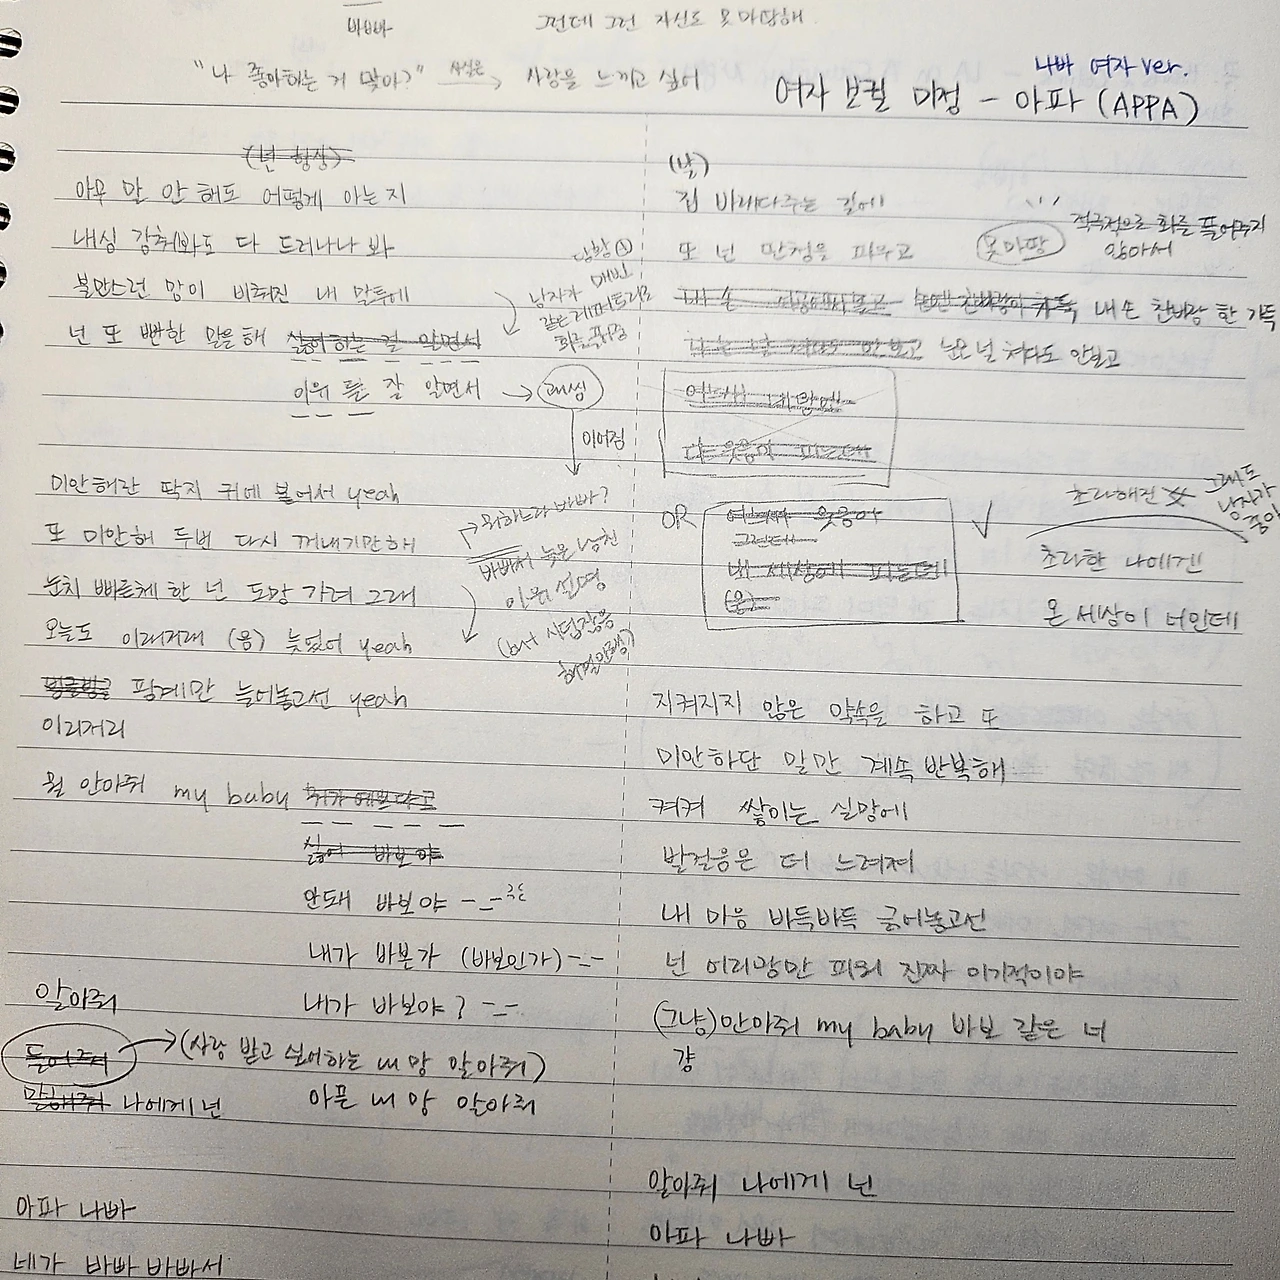 바빠
그런데 그런 자신도 못마땅해
"나 좋아하는 거 맞아?" 사실은 → 사랑을 느끼고 싶어
나빠 여자 ver.
여자 보컬 미정 - 아파 (APPA)
(넌 항상)
아무 말 안 해도 어떻게 아는지
내심 감춰봐도 다 드러나나 봐
불만스런 맘이 비춰진 내 말투에
넌 또 뻔한 말을 해 싫어하는 걸 알면서
이유 들 잘 알면서 → 괘씸
이어짐
남자가 매번
같은 레파토리로
미안해란 딱지 귀에 붙어서 yeah
또 미안해 두번 다시 꺼내기만해
눈치 빠른체 한 넌 도망 가려 그래
오늘도 이래저래 (응) 늦었어 yeah
핑계만 늘어놓고선 yeah
이리저리
뭐하느라 바빠?
바빠서 늦은 남친
이유 설명
월 안아줘 my baby
싫어 바보야
안돼 바보야
내가 바본가 (바보인가)
내가 바보야?
알아줘
들어줘 → (사랑 받고 싶어하는 내 맘 알아줘)
말해줘 나에게 넌
아픈 내 맘 알아줘
아파 나빠
네가 바빠 바빠서
(날)
집 바래다주는 길에
또 넌 딴청을 피우고
못마땅
적극적으로 화를 풀어주지
않아서
내 손 찬바람 한 가득
눈은 널 쳐다도 안보고
OR
초라해진
그래도
남자가
좋아
초라한 나에겐
온 세상이 너인데
지켜지지 않은 약속을 하고 또
미안하단 말만 계속 반복해
켜켜 쌓이는 실망에
발걸음은 더 느려져
내 마음 바득바득 긁어놓고선
넌 어리광만 피워 진짜 이기적이야
(그냥) 안아줘 my baby 바보 같은 너
걍
알아줘 나에게 넌
아파 나빠